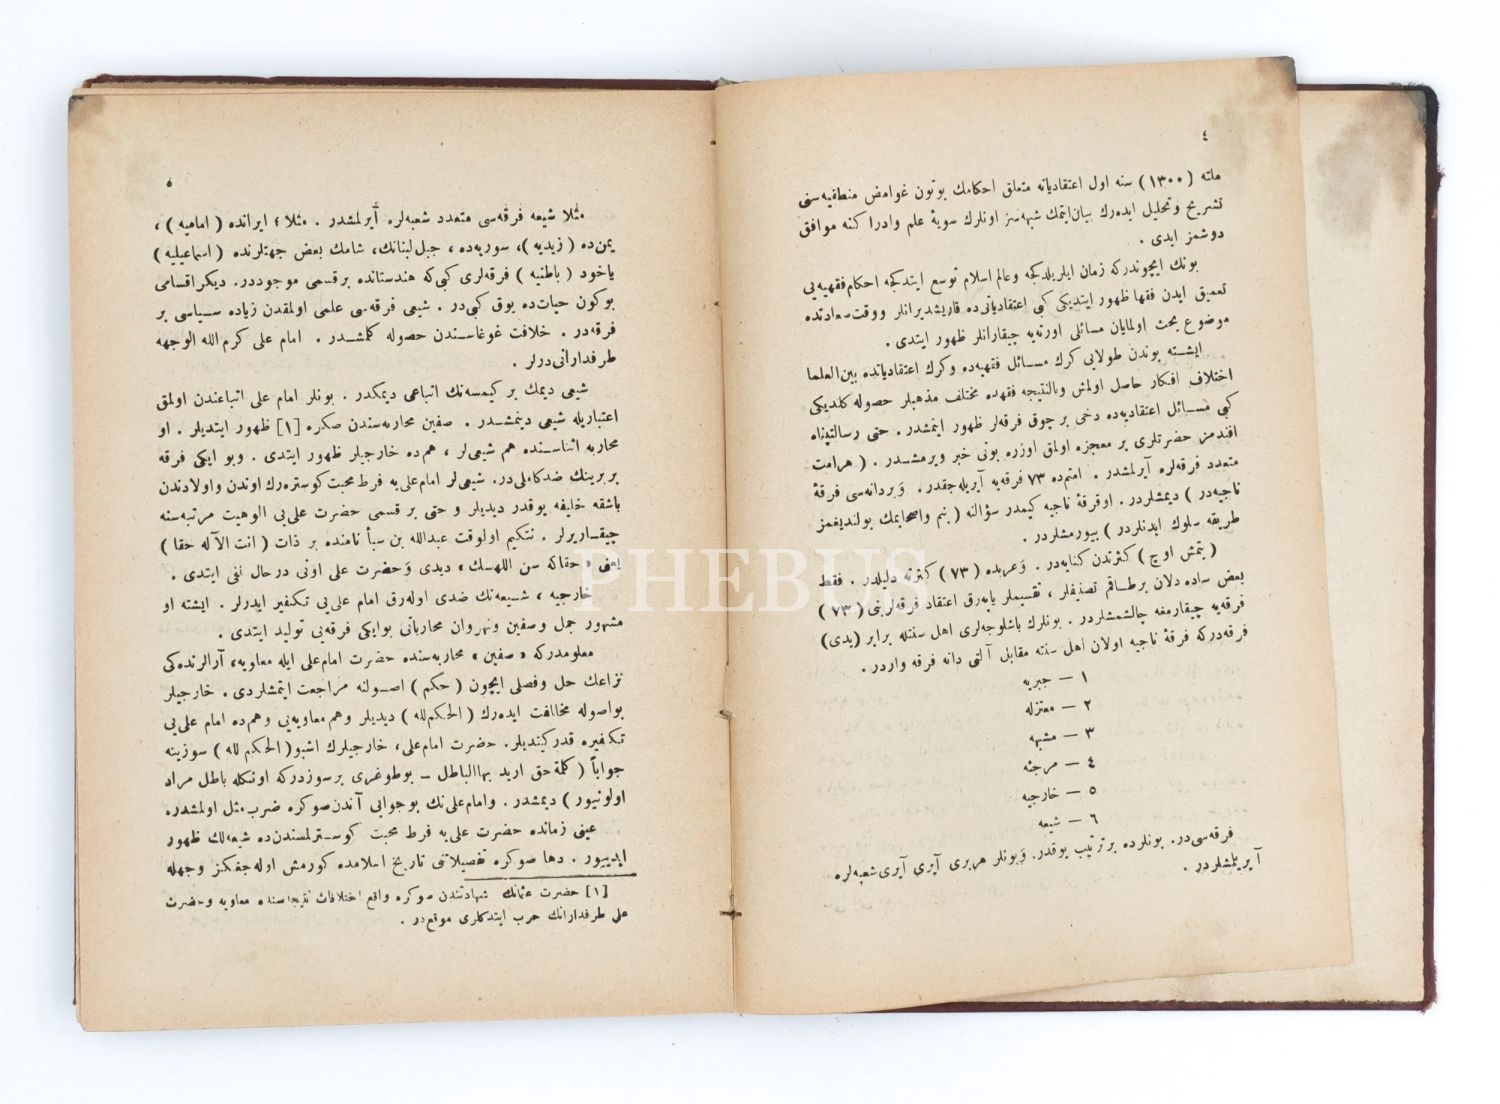 ٤
ملته (١٣٠٠) سنه اول اعتقادیاته متعلق احکامك بوتون غوامض منطقیه سنی
تشریح وتحلیل ایده رك بیان ایتمك شبهه سز اونلرك سویۀ علم وادرا کنه موافق
دوشمز ایدی .
بونك ایچوندرکه زمان ایلریلدکجه وعالم اسلام توسع ایتدکجه احکام فقهیه یی
تعمیق ایدن فقها ظهور ایتدیکی کبی اعتقادیاتی ده قاریشدیرانلر ووقت سعادتده
موضوع بحث اولمایان مسائلی اورته یه چیقارانلر ظهور ایتدی .
ایشته بوندن طولایی کرك مسائل فقهیه ده وکرك اعتقادیاتده بین العلما
اختلاف افکار حاصل اولمش وبالنتیجه فقهده مختلف مذهبلر حصوله کلدیکی
کبی مسائل اعتقادیه ده دخی بر چوق فرقه لر ظهور ایتمشدر . حتی رسالتپناه
افندمز حضرتلری بر معجزه اولمق اوزره بونی خبر ویرمشدر . ( هرامت
متعدد فرقه لره آیرلمشدر . امتم ده ٧٣ فرقه یه آیریله جقدر . وَبردانه سی فرقۀ
ناجیه در ) دیمشلردر . اوفرقۀ ناجیه کیمدر سؤالنه ( بنم واصحابمك بولندیغمز
طریقه سلوك ایدنلردر ) بیورمشلردر .
( یتمش اوچ ) کثرتدن کنایه در . وَعربده ( ٧٣ ) کثرته دلیلدر . فقط
بعض ساده دلان برطاقم تصنیفلر ، تقسیملر یاپه رق اعتقاد فرقه لرینی ( ٧٣ )
فرقه یه چیقارمغه چالشمشلردر . بونلرك باشلوجه لری اهل سنتله برابر (یدی)
فرقه درکه فرقۀ ناجیه اولان اهل سنته مقابل آلتی دانه فرقه واردر .
١ — جبریه
٢ — معتزله
٣ — مشبهه
٤ — مرجئه
٥ — خارجیه
٦ — شیعه
فرقه سی در . بونلرده بر ترتیب یوقدر . وَبونلر هربری آیری آیری شعبه لره
آیریلمشلردر .
٥
مثلا شیعه فرقه سی متعدد شعبه لره آیرلمشدر . مثلا ؛ ایرانده ( امامیه ) ،
یمن ده ( زیدیه )، سوریه ده ، جبل لبنانك، شامك بعض جهتلرنده ( اسماعیلیه )
یاخود ( باطنیه ) فرقه لری کبی که هندستانده بر قسمی موجوددر . دیکر اقسامی
بوکون حیات ده یوق کبی در . شیعی فرقه سی علمی اولمقدن زیاده سیاسی بر
فرقه در . خلافت غوغاسندن حصوله کلمشدر . امام علی کرم الله الوجهه
طرفدارانی درلر .
شیعی دیمك بر کیمسه نك اتباعی دیمکدر . بونلر امام علی اتباعندن اولمق
اعتباریله شیعی دینمشدر . صفین محاربه سندن صکره [١] ظهور ایتدیلر . او
محاربه اثناسنده هم شیعی لر ، هم ده خارجیلر ظهور ایتدی . وبو ایکی فرقه
بربرینك ضد کاملی در . شیعی لر امام علی یه فرط محبت کوستره رك اوندن واولادندن
باشقه خلیفه یوقدر دیدیلر و حتی بر قسمی حضرت علی بی الوهیت مرتبه سنه
چیقاریرلر . نتکیم اولوقت عبدالله بن سبأ نامنده بر ذات ( انت الآله حقا )
یعنی « حقاکه سن اللهسك » دیدی وَحضرت علی اونی درحال نفی ایتدی .
خارجیه ، شیعه نك ضدی اوله رق امام علی بی تکفیر ایدرلر . ایشته او
مشهور جمل وصفین ونهروان محارباتی بوایکی فرقه یی تولید ایتدی .
معلومدرکه « صفین » محاربه سنده حضرت امام علی ایله معاویه، آرالرنده کی
نزاعك حل وفصلی ایچون ( حکم ) اصولنه مراجعت ایتمشلردی . خارجیلر
بواصوله مخالفت ایده رك (الحکم لله) دیدیلر وهم معاویه یی وهم ده امام علی بی
تکفیره قدر کیتدیلر . حضرت امام علی، خارجیلرك اشبو( الحکم لله ) سوزینه
جواباً ( کلمة حق ارید بهاالباطل – بوطوغری بر سوزدرکه اونکله باطل مراد
اولونیور ) دیمشدر . وامام علی نك بو جوابی آندن صوکره ضرب مثل اولمشدر .
عینی زمانده حضرت علی یه فرط محبت کوسترلمسندن ده شیعه لك ظهور
ایدییور . دها صوکره تفصیلاتنی تاریخ اسلامده کورمش اوله جغکز وجهله
[١] حضرت عثمانك شهادتندن صوکره واقع اختلافات نتیجه سنده معاویه وحضرت
علی طرفدارانك حرب ایتدکلری موقع در .
PHEBUS